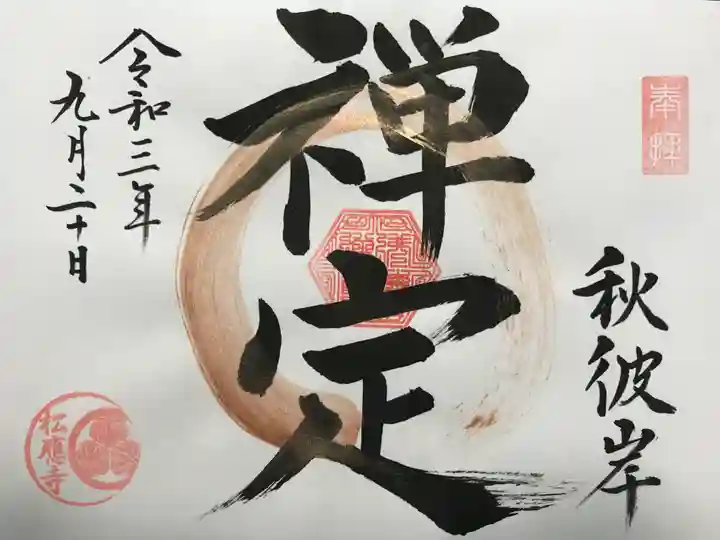 奉拝
秋彼岸
禅定
令和三年
九月二十日
松應寺